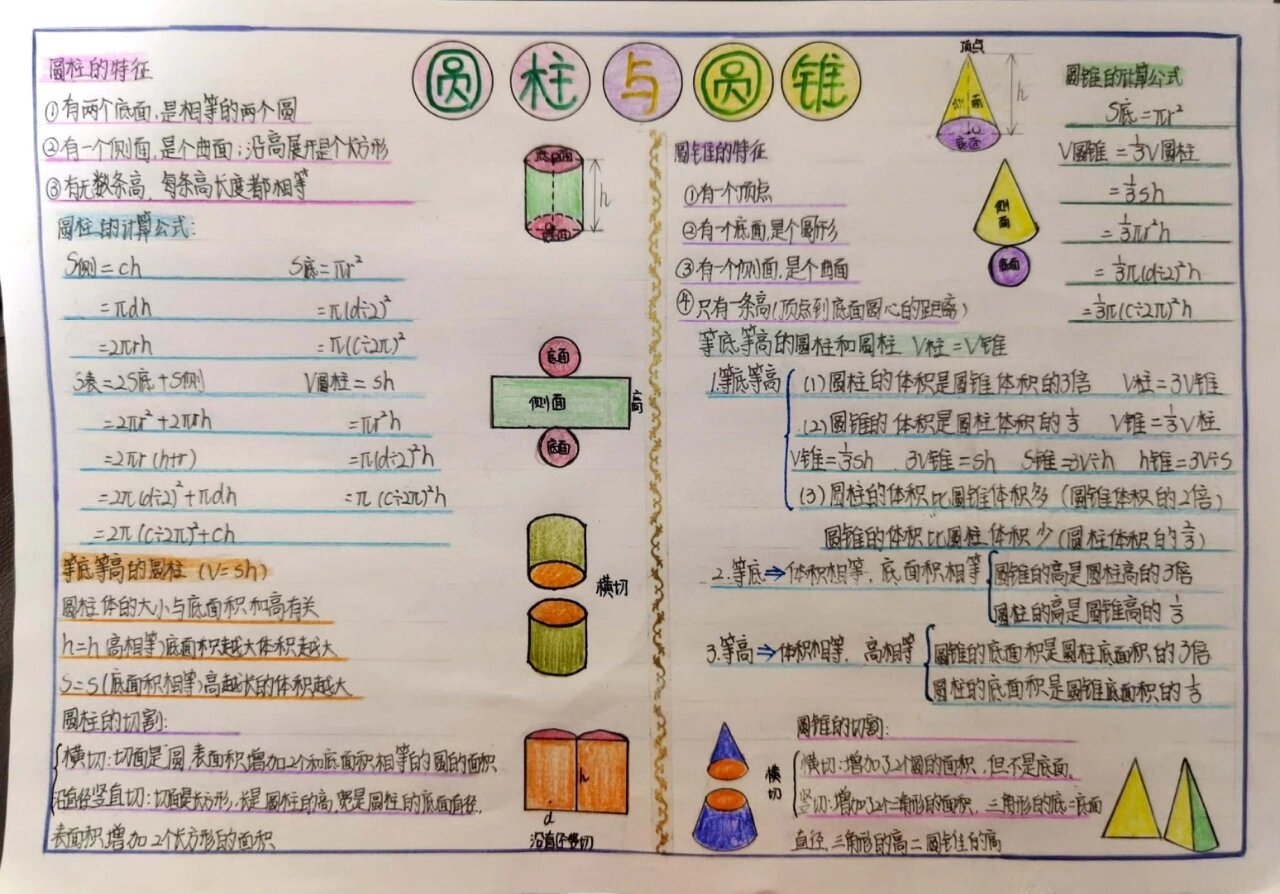 圆柱与圆锥
圆柱的特征
①有两个底面,是相等的两个圆
②有一个侧面,是个曲面;沿高展开是个长方形
③有无数条高,每条高长度都相等
圆柱的计算公式:
S侧=ch
S底=πr²
=πdh
=π(d÷2)²
=2πrh
=π(C÷2π)²
S表=2S底+S侧
V圆柱=sh
=2πr²+2πrh
=πr²h
=2πr(h+r)
=π(d÷2)²h
=2π(d÷2)²+πdh
=π(C÷2π)²h
=2π(C÷2π)²+ch
等底等高的圆柱(V=sh)
圆柱体的大小与底面积和高有关
h=h(高相等)底面积越大体积越大
S=S(底面积相等)高越长的体积越大
圆柱的切割:
横切:切面是圆,表面积增加2个和底面积相等的圆的面积
沿直径竖直切:切面是长方形,长是圆柱的高,宽是圆柱的底面直径,
表面积增加2个长方形的面积
底面
h
底面
底面
侧面
高
底面
横切
h
d
沿直径竖切
圆锥的特征
①有一个顶点
②有一个底面,是个圆形
③有一个侧面,是个曲面
④只有一条高(顶点到底面圆心的距离)
顶点
h
侧面
底面
侧面
底面
圆锥的计算公式
S底=πr²
V圆锥=⅓V圆柱
=⅓sh
=⅓πr²h
=⅓π(d÷2)²h
=⅓π(C÷2π)²h
等底等高的圆柱和圆柱 V柱=V锥
1.等底等高
(1)圆柱的体积是圆锥体积的3倍 V柱=3V锥
(2)圆锥的体积是圆柱体积的⅓ V锥=⅓V柱
V锥=⅓sh 3V锥=sh S锥=3V÷h h锥=3V÷s
(3)圆柱的体积比圆锥体积多(圆锥体积的2倍)
圆锥的体积比圆柱体积少(圆柱体积的⅔)
2.等底⇒体积相等,底面积相等
圆锥的高是圆柱高的3倍
圆柱的高是圆锥高的⅓
3.等高⇒体积相等,高相等
圆锥的底面积是圆柱底面积的3倍
圆柱的底面积是圆锥底面积的⅓
圆锥的切割:
横切:增加了2个圆的面积,但不是底面.
竖切:增加了2个三角形的面积,三角形的底=底面
直径,三角形的高=圆锥的高
横切